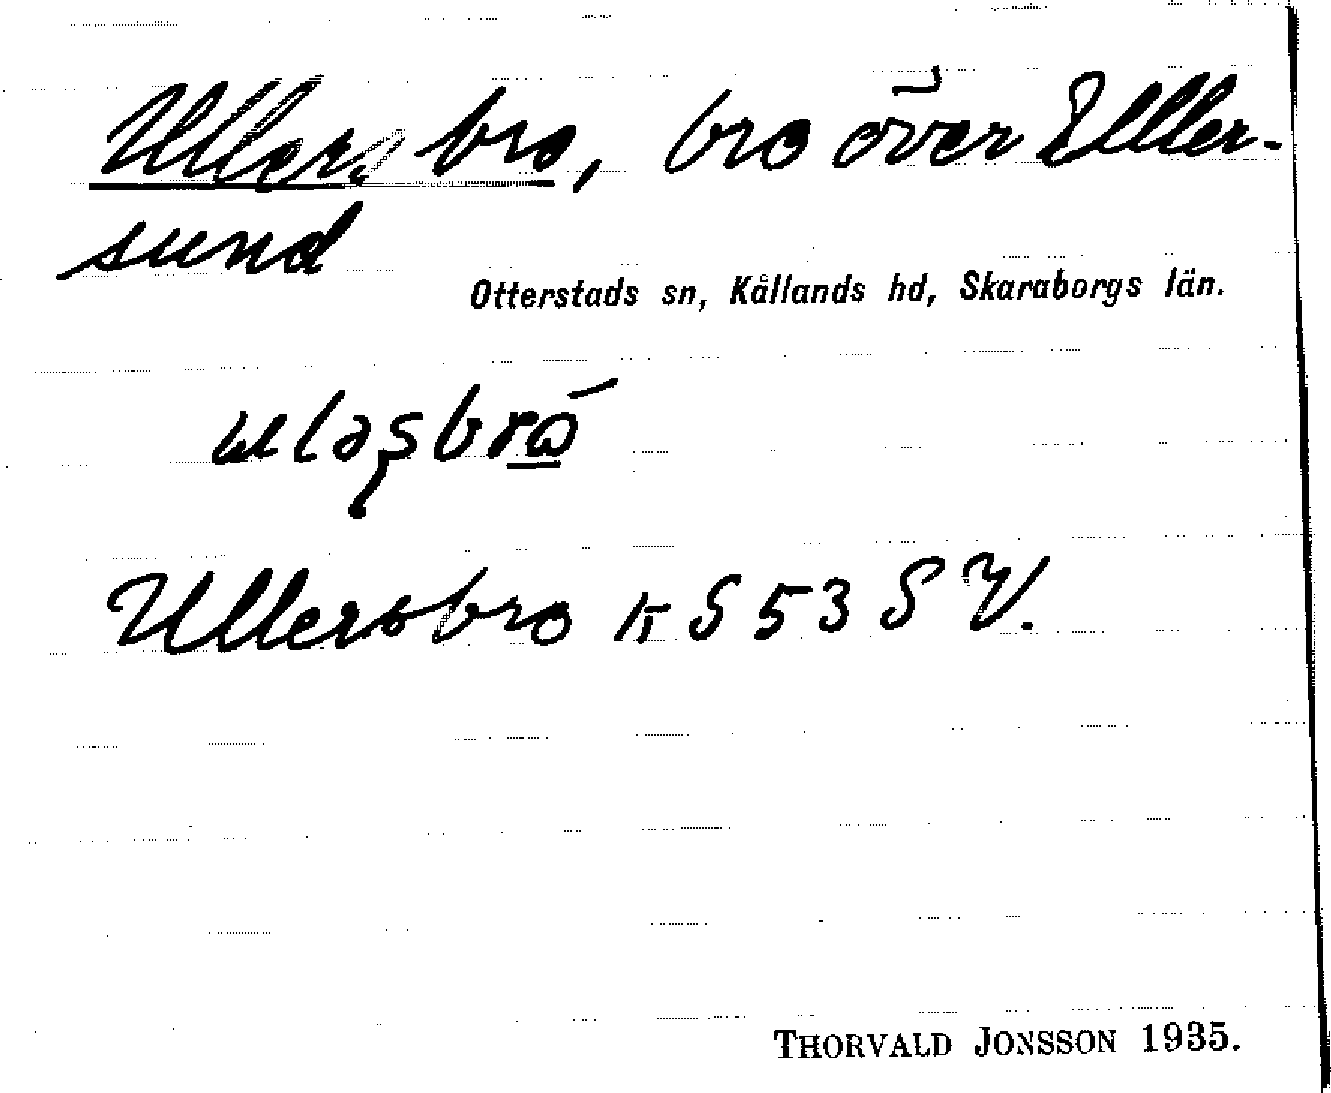 Ullersbro, bro över Eller-
sund
Otterstads sn, Kållands hd, Skaraborgs län.
Ullersbro K S 53 SV.
THORVALD JONSSON 1935.